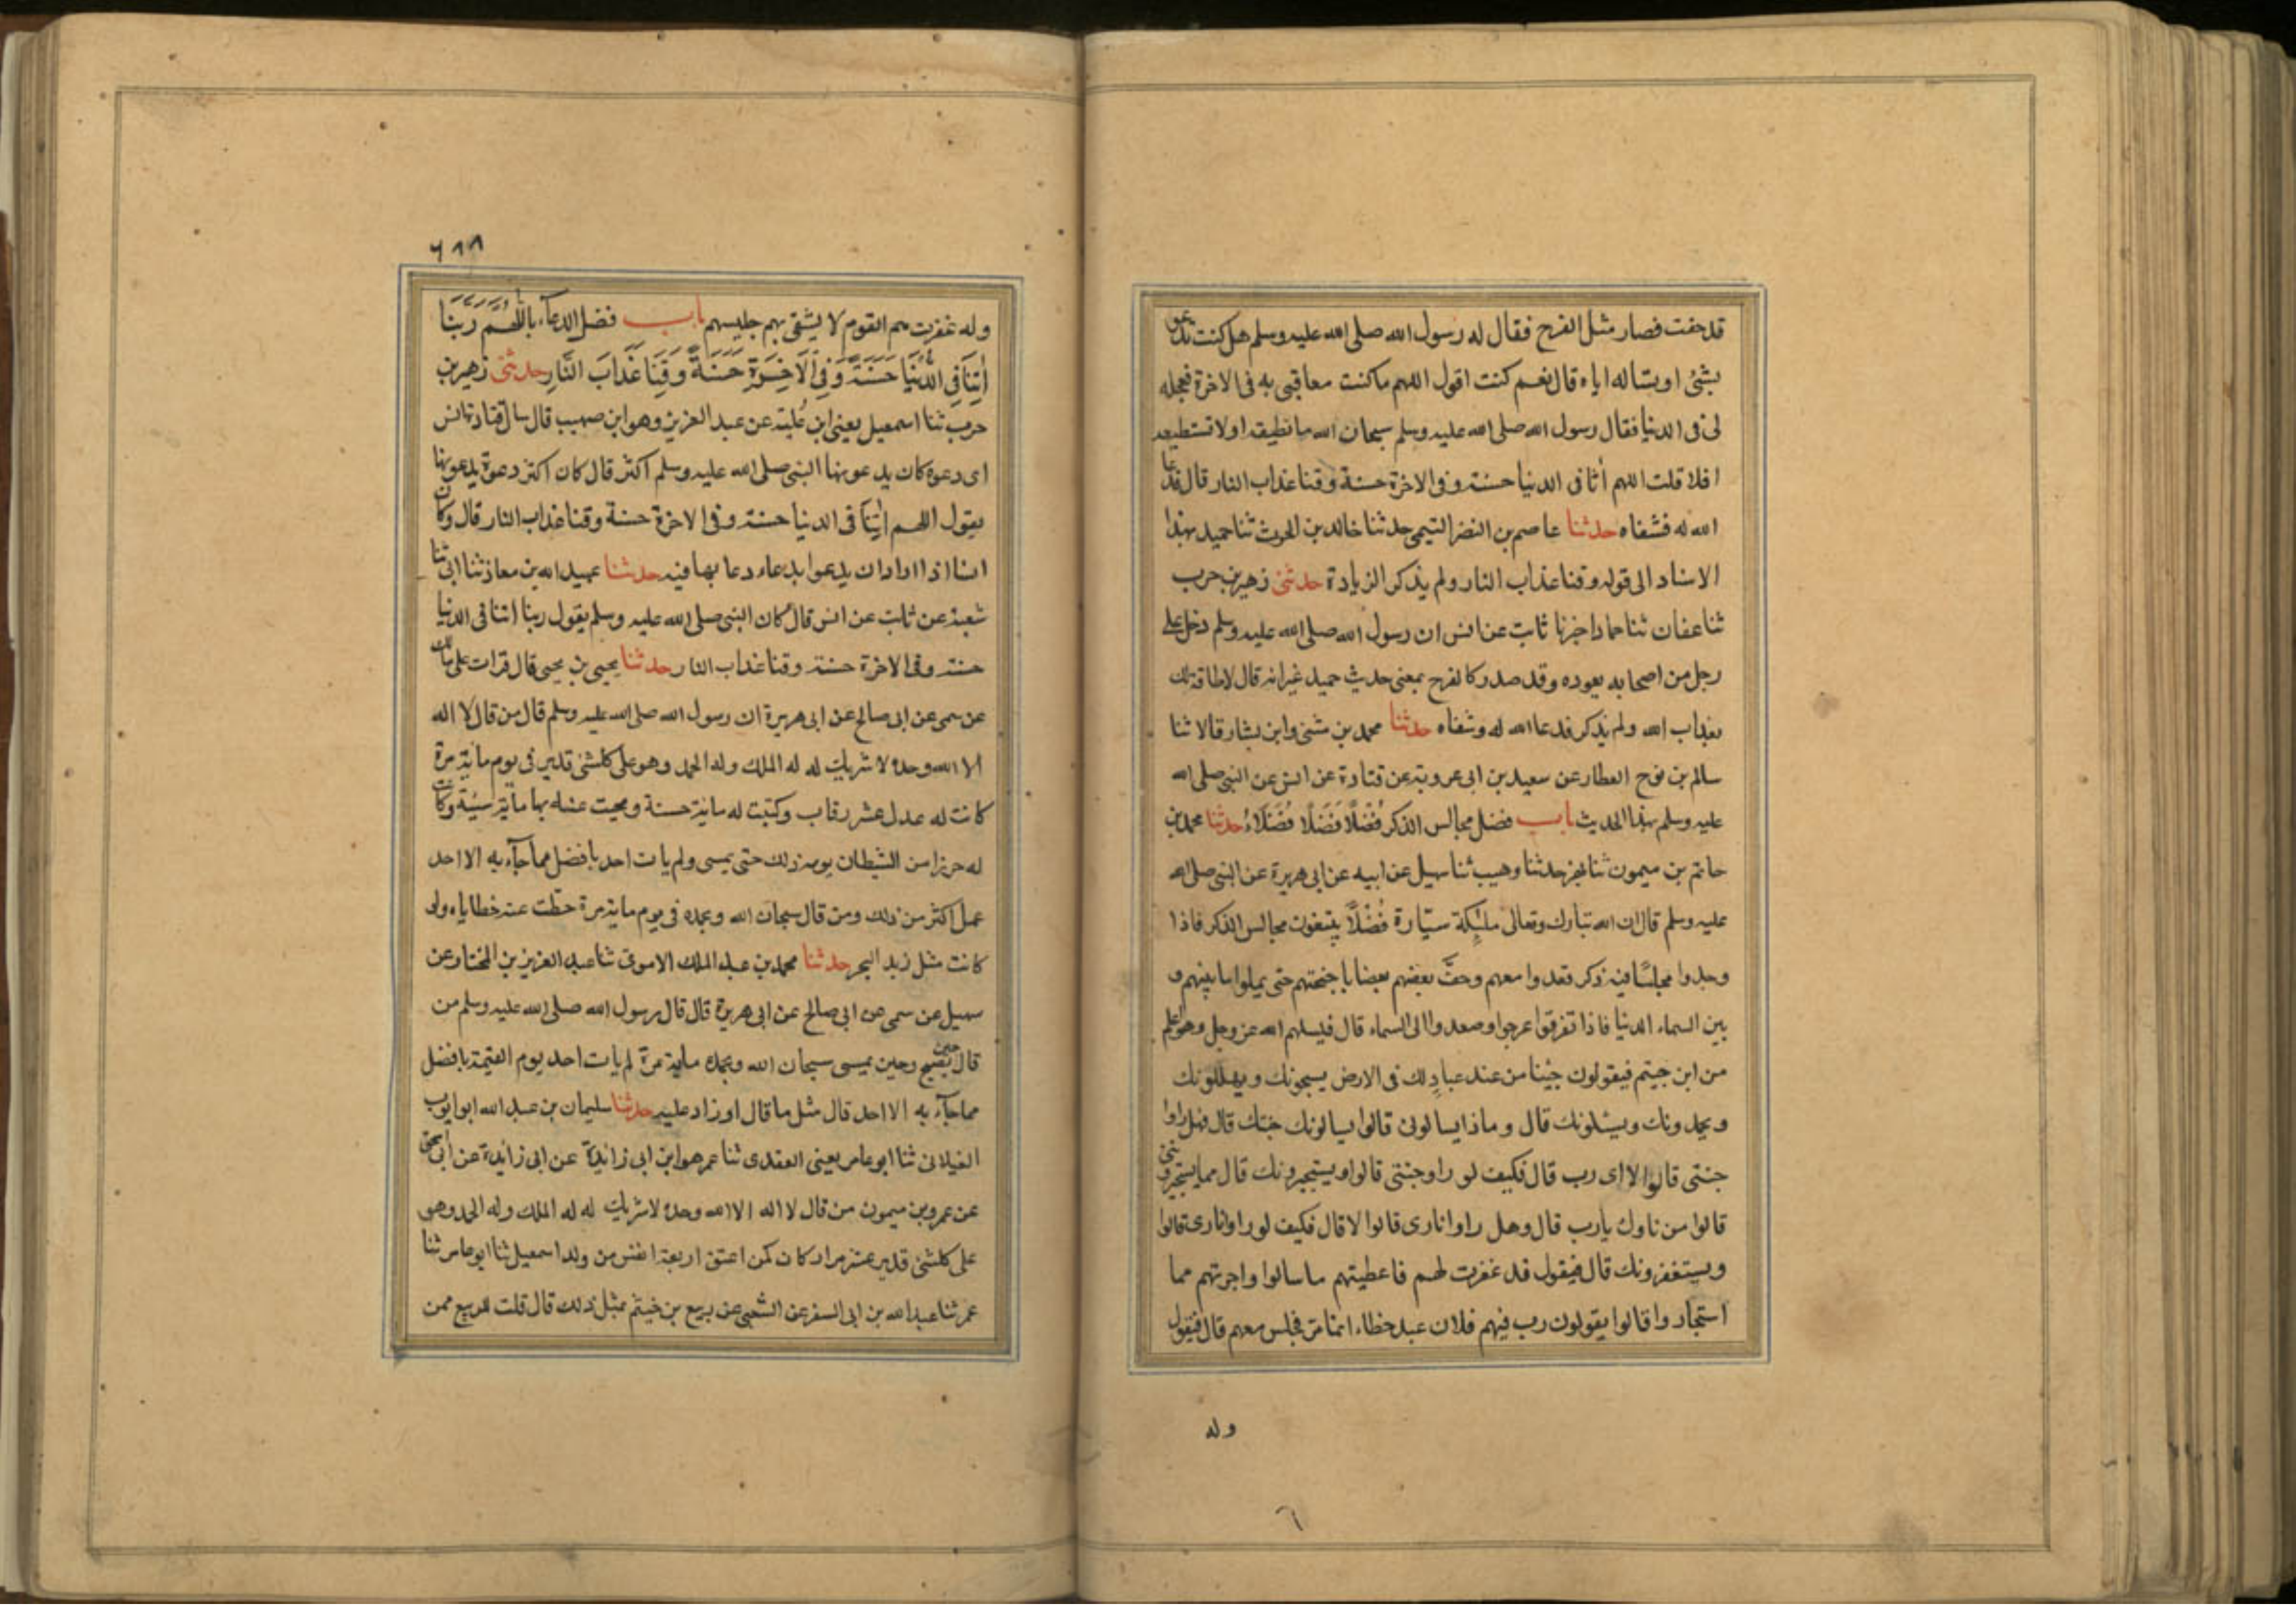 قد خفت فصار مثل الفرخ فقال له رسول الله صلى الله عليه وسلم هل كنت تدعو
بشئ او تسأله اياه قال نعم كنت اقول اللهم ما كنت معاقبى به فى الاخرة فعجله
لى فى الدنيا فقال رسول الله صلى الله عليه وسلم سبحان الله ما تطيقه او لا تستطيعه
افلا قلت اللهم أتنا فى الدنيا حسنة وفى الاخرة حسنة وقنا عذاب النار قال فدعا
الله له فشفاه حدثنا عاصم بن النضر التيمى حدثنا خالد بن الحرث ثنا حميد بهذا
الاسناد الى قوله وقنا عذاب النار ولم يذكر الزيادة حدثنى زهير بن حرب
ثنا عفان ثنا حماد اخبرنا ثابت عن انس ان رسول الله صلى الله عليه وسلم دخل على
رجل من اصحابه يعوده وقد صدر كالفرخ بمعنى حديث حميد غير انه قال لا طاقة لك
بعذاب الله ولم يذكر فدعا الله له وشفاه حدثنا محمد بن مثنى وابن بشار قالا ثنا
سالم بن نوح العطار عن سعيد بن ابى عروبة عن قتادة عن انس عن النبى صلى الله
عليه وسلم بهذا الحديث باب فضل مجالس الذكر فُضْلًا فَضَلًا فُضَلَاءُ حدثنا محمد بن
حاتم بن ميمون ثنا بهز حدثنا وهيب ثنا سهيل عن ابيه عن ابى هريرة عن النبى صلى الله
عليه وسلم قال ان الله تبارك وتعالى ملئكة سيّارة فُضْلًا يبتغون مجالس الذكر فاذا
وجدوا مجلسًا فيه ذكر قعدوا معهم وحفّ بعضهم بعضا باجنحتهم حتى يملوا ما بينهم و
بين السماء الدنيا فاذا تفرقوا عرجوا وصعدوا الى السماء قال فيسلهم الله عز وجل وهو اعلم
من اين جيتم فيقولون جينا من عند عبادٍ لك فى الارض يسبحونك ويهللونك
ويحمدونك ويسئلونك قال وماذا يسالونى قالوا يسالونك جنتك قال فهل راوا
جنتى قالوا لا اى رب قال فكيف لو راو جنتى قالوا ويستجيرونك قال مما يستجيرونى
قالوا من نارك يارب قال وهل راوا نارى قالوا لا قال فكيف لو راوا نارى قالوا
ويستغفرونك قال فيقول قد غفرت لهم فاعطيتهم ما سالوا واجرتهم مما
استجاروا قالوا يقولون رب فيهم فلان عبد خطاء انما مر فجلس معهم قال فيقول
وله
٦
٦٨٨
وله غفرت هم القوم لا يشقى بهم جليسهم باب فضل الدعاء باللّٰهُمَّ رَبَّنَا
اٰتِنَا فِى الدُّنْيَا حَسَنَةً وَفِى الْاٰخِرَةِ حَسَنَةً وَقِنَا عَذَابَ النَّارِ حدثنى زهير بن
حرب ثنا اسمعيل يعنى ابن عُليّة عن عبد العزيز وهو ابن صهيب قال سال قتادة انس
اى دعوة كان يدعو بها النبى صلى الله عليه وسلم اكثر قال كان اكثر دعوة يدعو بها
يقول اللهم اٰتِنَا فى الدنيا حسنة وفى الاخرة حسنة وقنا عذاب النار قال وكان
انس اذا اراد ان يدعو بدعاء دعا بها فيه حدثنا عبيد الله بن معاذ ثنا ابى ثنا
شعبة عن ثابت عن انس قال كان النبى صلى الله عليه وسلم يقول ربنا اتنا فى الدنيا
حسنة وفى الاخرة حسنة وقنا عذاب النار حدثنا يحيى بن يحيى قال قرات على مالك
عن سمى عن ابى صالح عن ابى هريرة ان رسول الله صلى الله عليه وسلم قال من قال لا اله
الا الله وحده لا شريك له له الملك وله الحمد وهو على كلشئ قدير فى يوم ماية مرة
كانت له عدل عشر رقاب وكتبت له ماية حسنة ومحيت عنه بها ماية سيئة وكانت
له حرزا من الشيطان يومه ذلك حتى يمسى ولم يات احد بافضل مما جآء به الا احد
عمل اكثر من ذلك ومن قال سبحان الله وبحمده فى يوم ماية مرة حطت عنه خطاياه ولو
كانت مثل زبد البحر حدثنا محمد بن عبد الملك الاموى ثنا عبد العزيز بن المختار عن
سهيل عن سمى عن ابى صالح عن ابى هريرة قال قال رسول الله صلى الله عليه وسلم من
قال حين يصبح وحين يمسى سبحان الله وبحمده ماية مرة لم يات احد يوم القيمة بافضل
مما جآء به الا احد قال مثل ما قال او زاد عليه حدثنا سليمان بن عبد الله ابو ايوب
الغيلانى ثنا ابو عامر يعنى العقدى ثنا عمر هو ابن ابى زائدة عن ابى زائدة عن ابى اسحق
عن عمرو بن ميمون من قال لا اله الا الله وحده لا شريك له له الملك وله الحمد وهو
على كلشئ قدير عشر مرار كان كمن اعتق اربعة انفس من ولد اسمعيل ثنا ابو عامر ثنا
عمر ثنا عبد الله بن ابى السفر عن الشعبى عن ربيع بن خيثم بمثل ذلك قال قلت للربيع ممن